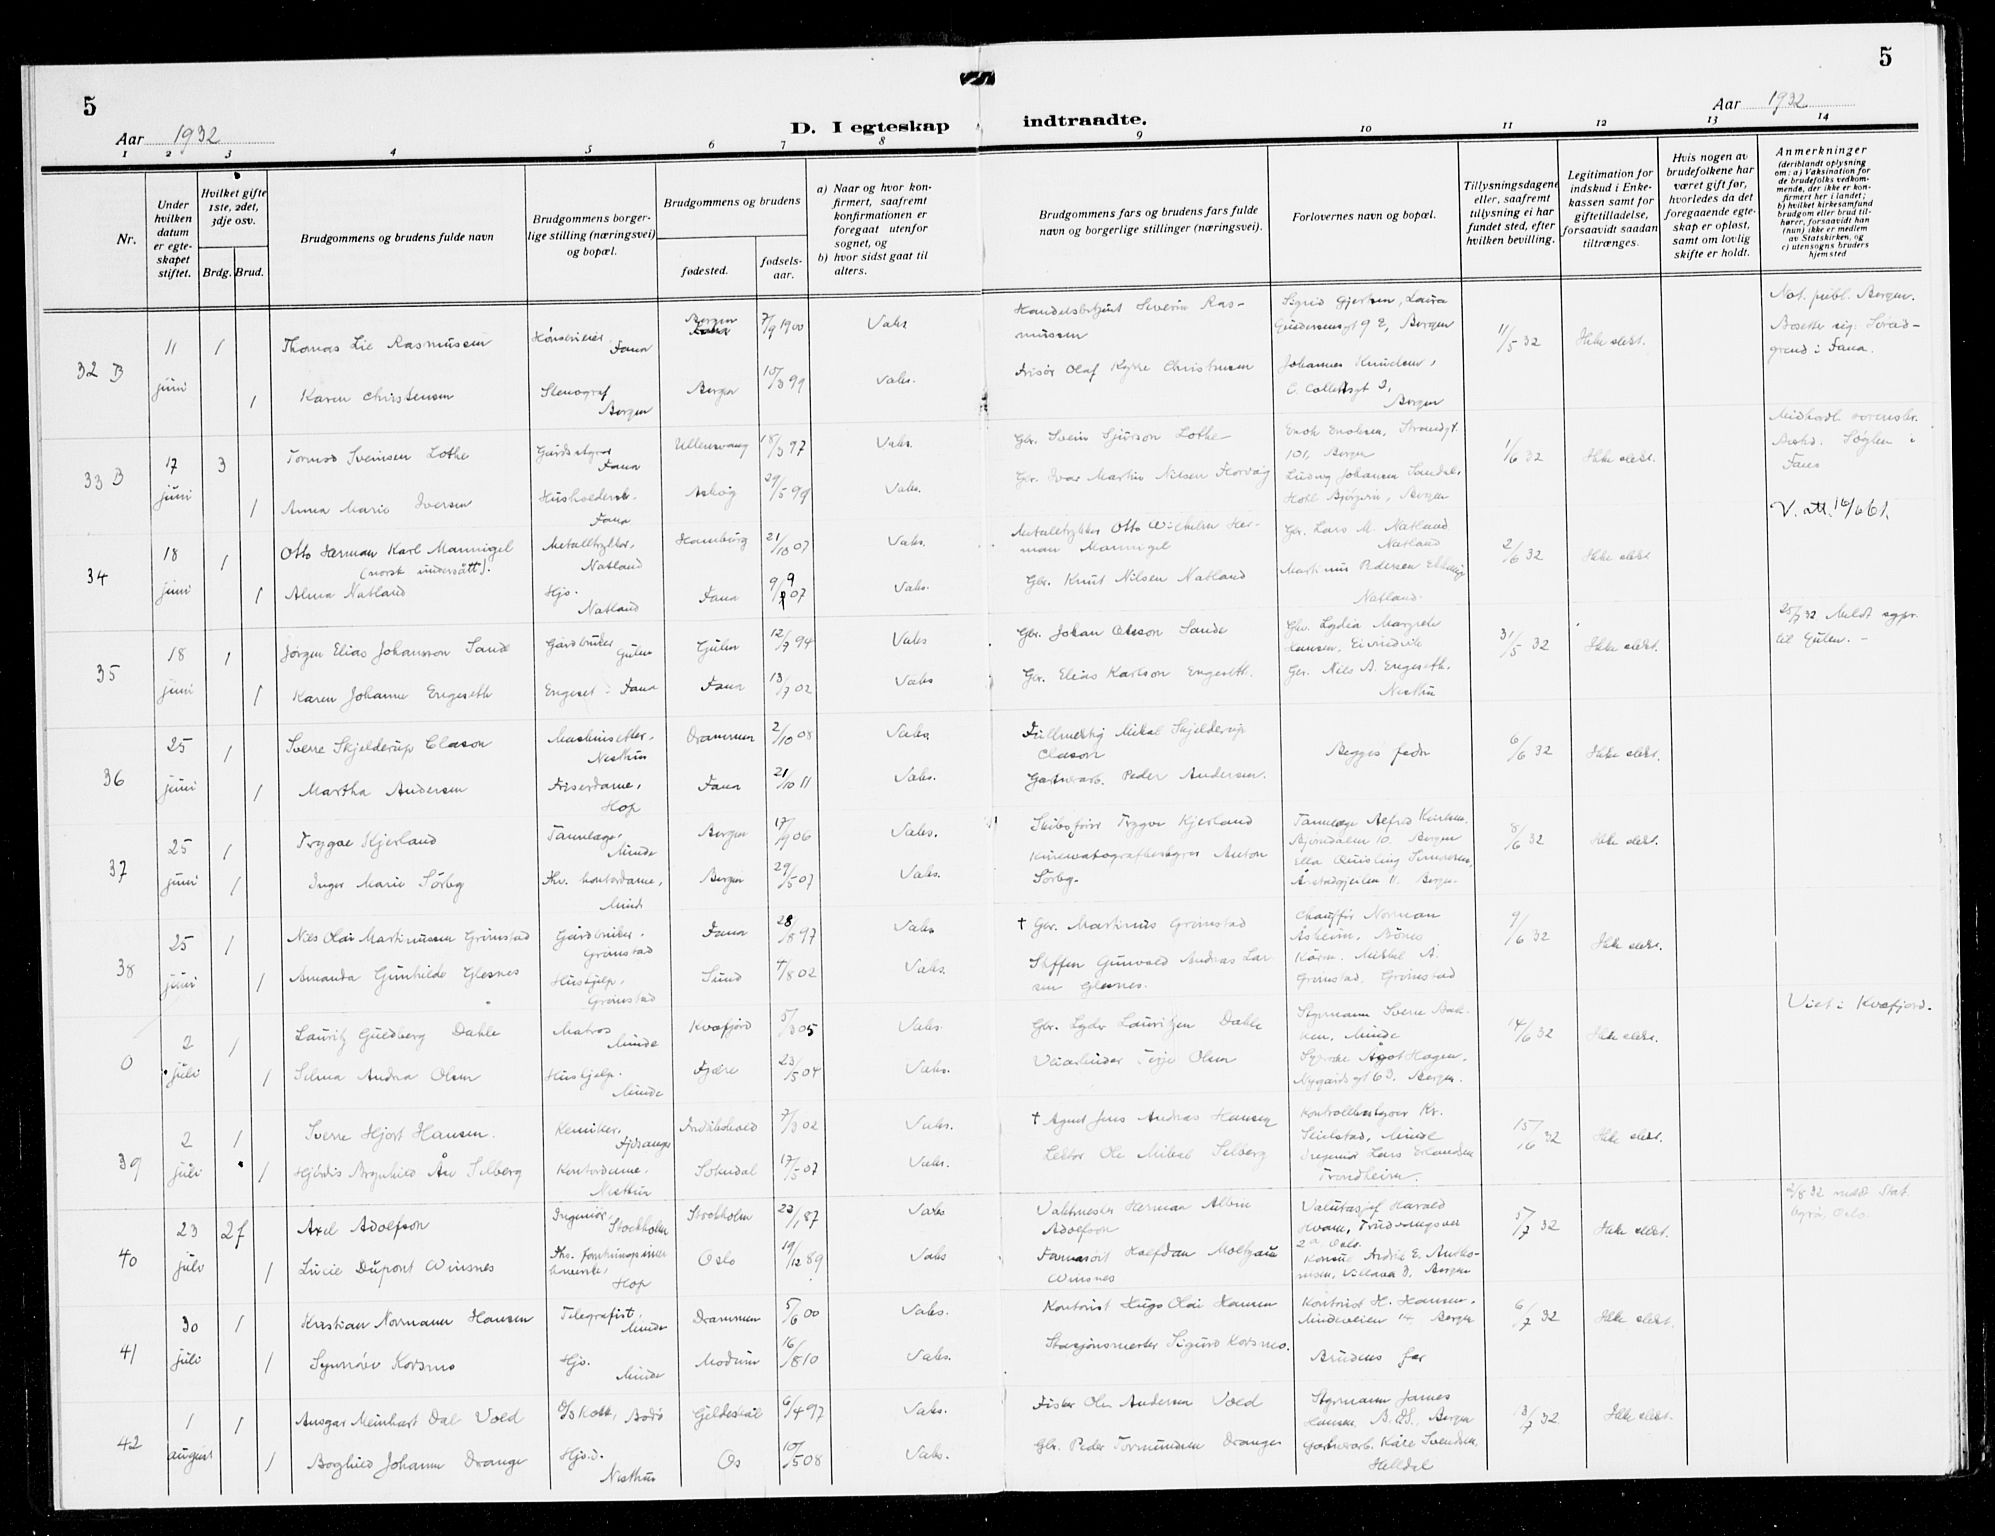 5
5
Aar 1932
D. I egteskap indtraadte.
Aar 1932
1 2 3 4 5 6 7 8 9 10 11 12 13 14
Nr.
Under hvilken datum er egteskapet stiftet.
Hvilket gifte 1ste, 2det, 3dje osv.
Brdg. Brud.
Brudgommens og brudens fulde navn
Brudgommens borgerlige stilling (næringsvei) og bopæl.
Brudgommens og brudens
fødested.
fødselsaar.
a) Naar og hvor konfirmert, saafremt konfirmationen er foregaat utenfor sognet, og
b) hvor sidst gaat til alters.
Brudgommens fars og brudens fars fulde navn og borgerlige stillinger (næringsvei).
Forlovernes navn og bopæl.
Tillysningsdagene eller, saafremt tillysning ei har fundet sted, efter hvilken bevilling.
Legitimation for indskud i Enkekassen samt for giftetilladelse, forsaavidt saadan tiltrænges.
Hvis nogen av brudefolkene har været gift før, hvorledes da det foregaaende egteskap er opløst, samt om lovlig skifte er holdt.
Anmerkninger
(deriblandt oplysning om: a) Vaksination for de brudefolks vedkommende, der ikke er konfirmert her i landet; b) hvilket kirkesamfund brudgom eller brud tilhører, forsaavidt han (hun) ikke er medlem av Statskirken, og c) utensogns bruders hjemsted
32 B 11 juni 1 Thomas Lie Rasmussen Hønserieier, Fana Bergen 7/9 1900 Vaks Handelsbetjent Severin Rasmussen Sigrid Gjertsen, Laura Gundersensgt 9 E, Bergen 11/5 32 Ikke slekt. Not. publ. Bergen. Bosetter sig: Søraadgrend i Fana.
1 Karen Christensen Stenograf Bergen Bergen 10/3 99 Vaks. Frisør Olaf Kyrre Christensen Johannes Knudsen, C. Collettsgt 2, Bergen
33 B 17 juni 3 Tormod Sveinsen Lothe Gårdstyrer Fana Ullensvang 18/3 97 Vaks. Gbr. Svein Sjurson Lothe Enok Enoksen, Strandgt. 101, Bergen 1/6 32 Ikke slekt. Midhordl. sorenskr. Bosted: Søylen i Fana
1 Anna Marie Iversen Husholdersk. Fana Askøy 29/5 99 Vaks. Gbr. Ivar Martin Nilsen Florvåg Ludvig Johansen Sandal, Hotel Bjørgvin, Bergen
34 18 juni 1 Otto Herman Karl Mannigel (norsk undersått). Metalltrykker, Natland Hamburg 21/10 07 Vaks. Metalltrykker Otto Wilhelm Herman Mannigel Gbr. Lars M. Natland Natland 2/6 32 Ikke slekt. V. att. 16/6 61.
1 Alma Natland Hjs. Natland Fana 9/9 07 Vaks. Gbr. Knut Nilsen Natland Martinus Pedersen Natland.
35 18 juni 1 Jørgen Elias Johansson Sande Gårdbruker Gulen Gulen 12/9 94 Vaks Gbr. Johan Olsson Sande Gbr. Lydia Margrete Hansen, Eivindvik 31/5 32 Ikke slekt. 25/7 32 Meldt sogpr. til Gulen. -
1 Karen Johanne Engeseth Engeset i Fana Fana 13/7 02 Vaks Gbr. Elias Karlson Engeseth. Gbr. Nils A. Engeseth, Nesttun
36 25 juni 1 Sverre Skjelderup Clason Maskinsetter, Nesttun Drammen 2/10 08 Vaks Fullmektig Mikal Skjelderup Clason Begges fedre 6/6 32 Ikke slekt.
1 Martha Andersen Friserdame, Hop Fana 21/10 11 Vaks. Gartnerarb. Peder Andersen.
37 25 juni 1 Trygve Kjerland Tannlæge, Minde Bergen 17/9 06 Vaks. Skibsfører Trygve Kjerland Tannlæge Alfred Karlsen, Bjørndalen 10. Bergen 8/6 32 Ikke slekt.
1 Inger Marie Sørby Fhv. kontordame, Minde Bergen 29/5 07 Vaks. Kinematografbestyrer Anton Sørby. Ella Quisling Simonsen, Årstadgjeilen 11. Bergen
38 25 juni 1 Nils Olai Martinussen Grimstad Gårdbruker, Grimstad Fana 28/8 97 Vaks † Gbr. Martinus Grimstad Chauffør Norman Åsheim, Bønes 9/6 32 Ikke slekt.
1 Amanda Gunhilde Glesnes Hushjelp, Grimstad Sund 4/8 02 Vaks. Steffen Gunvald Andreas Larsen Glesnes. Kårm. Mikkel A. Grimstad, Grimstad
0 2 juli 1 Lauritz Guldberg Dahle Matros Minde Kvæfjord 5/3 05 Vaks. Gbr. Lyder Lauritzen Dahle Styrmann Sverre Bakken, Minde 14/6 32 Ikke slekt. Viet i Kvæfjord.
1 Selma Andrea Olsen Hushjelp. Minde Fjære 23/5 04 Vaks. Terje Olsen Syerske Ågot Hagen, Nygårdsgt 63. Bergen.
39 2 juli 1 Sverre Hjort Hansen. Kemiker, Fjøsanger Fredrikshald 7/3 02 Vaks. † Agent Jens Andreas Hansen Kontrollbestyrer Kr. Skilstad, Minde 15/6 32 Ikke slekt.
1 Hjørdis Ragnhild Ås Selberg Kontordame, Nesttun Sokndal 17/5 07 Vaks. Lektor Ole Mikael Selberg Ingeniør Lars Erlandsen Trondheim.
40 23 juli 2f Axel Adolfson Ingeniør, Stockholm Stockholm 22/1 87 Vaks Vaktmester Herman Albin Adolfson Valutasjef Harald Hvam, Trudvangsvei 2a Oslo. 5/7 32 Ikke slekt. 2/8 32 meldt Stat. byrå, Oslo.
1 Lucie Dupont Winsnes Hop Oslo 19/12 89 Vaks Farmasøit Halfdan Moltzau Winsnes Konsul Andr. E. Andersen, Villavei, Bergen
41 30 juli 1 Kristian Normann Hansen Telegrafist, Minde Drammen 5/6 00 Vaks. Kontorist Hugo Olai Hansen Kontorist H. Hansen, Mindeveien 14 Bergen 6/7 32 Ikke slekt.
1 Synnøve Korsmo Hjs. Minde Modum 16/8 10 Vaks. Stasjonsmester Sigurd Korsmo. Brudens far
42 1 august 1 Ansgar Meinhart Dal Vold Bodø Gildeskål 6/4 97 Vaks. Fisker Ole Andersen Vold Styrmann James Hansen, B.D.S., Bergen 13/7 32 Ikke slekt.
1 Borghild Johanne Drange Hjs.d. Nesttun Os 10/5 08 Vaks. Gbr. Peder Tormundsen Drange Gartnerarb. Kåre Svendsen, Helldal